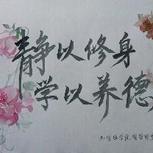 静以修身
学以养德